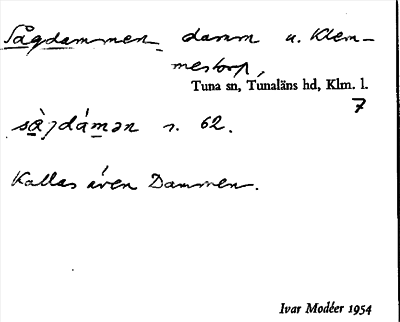 Sågdammen damm u. Klem-
mestorp,
Tuna sn, Tunaläns hd, Klm. l.
7
s. 62.
Kallas även Dammen.
Ivar Modéer 1954